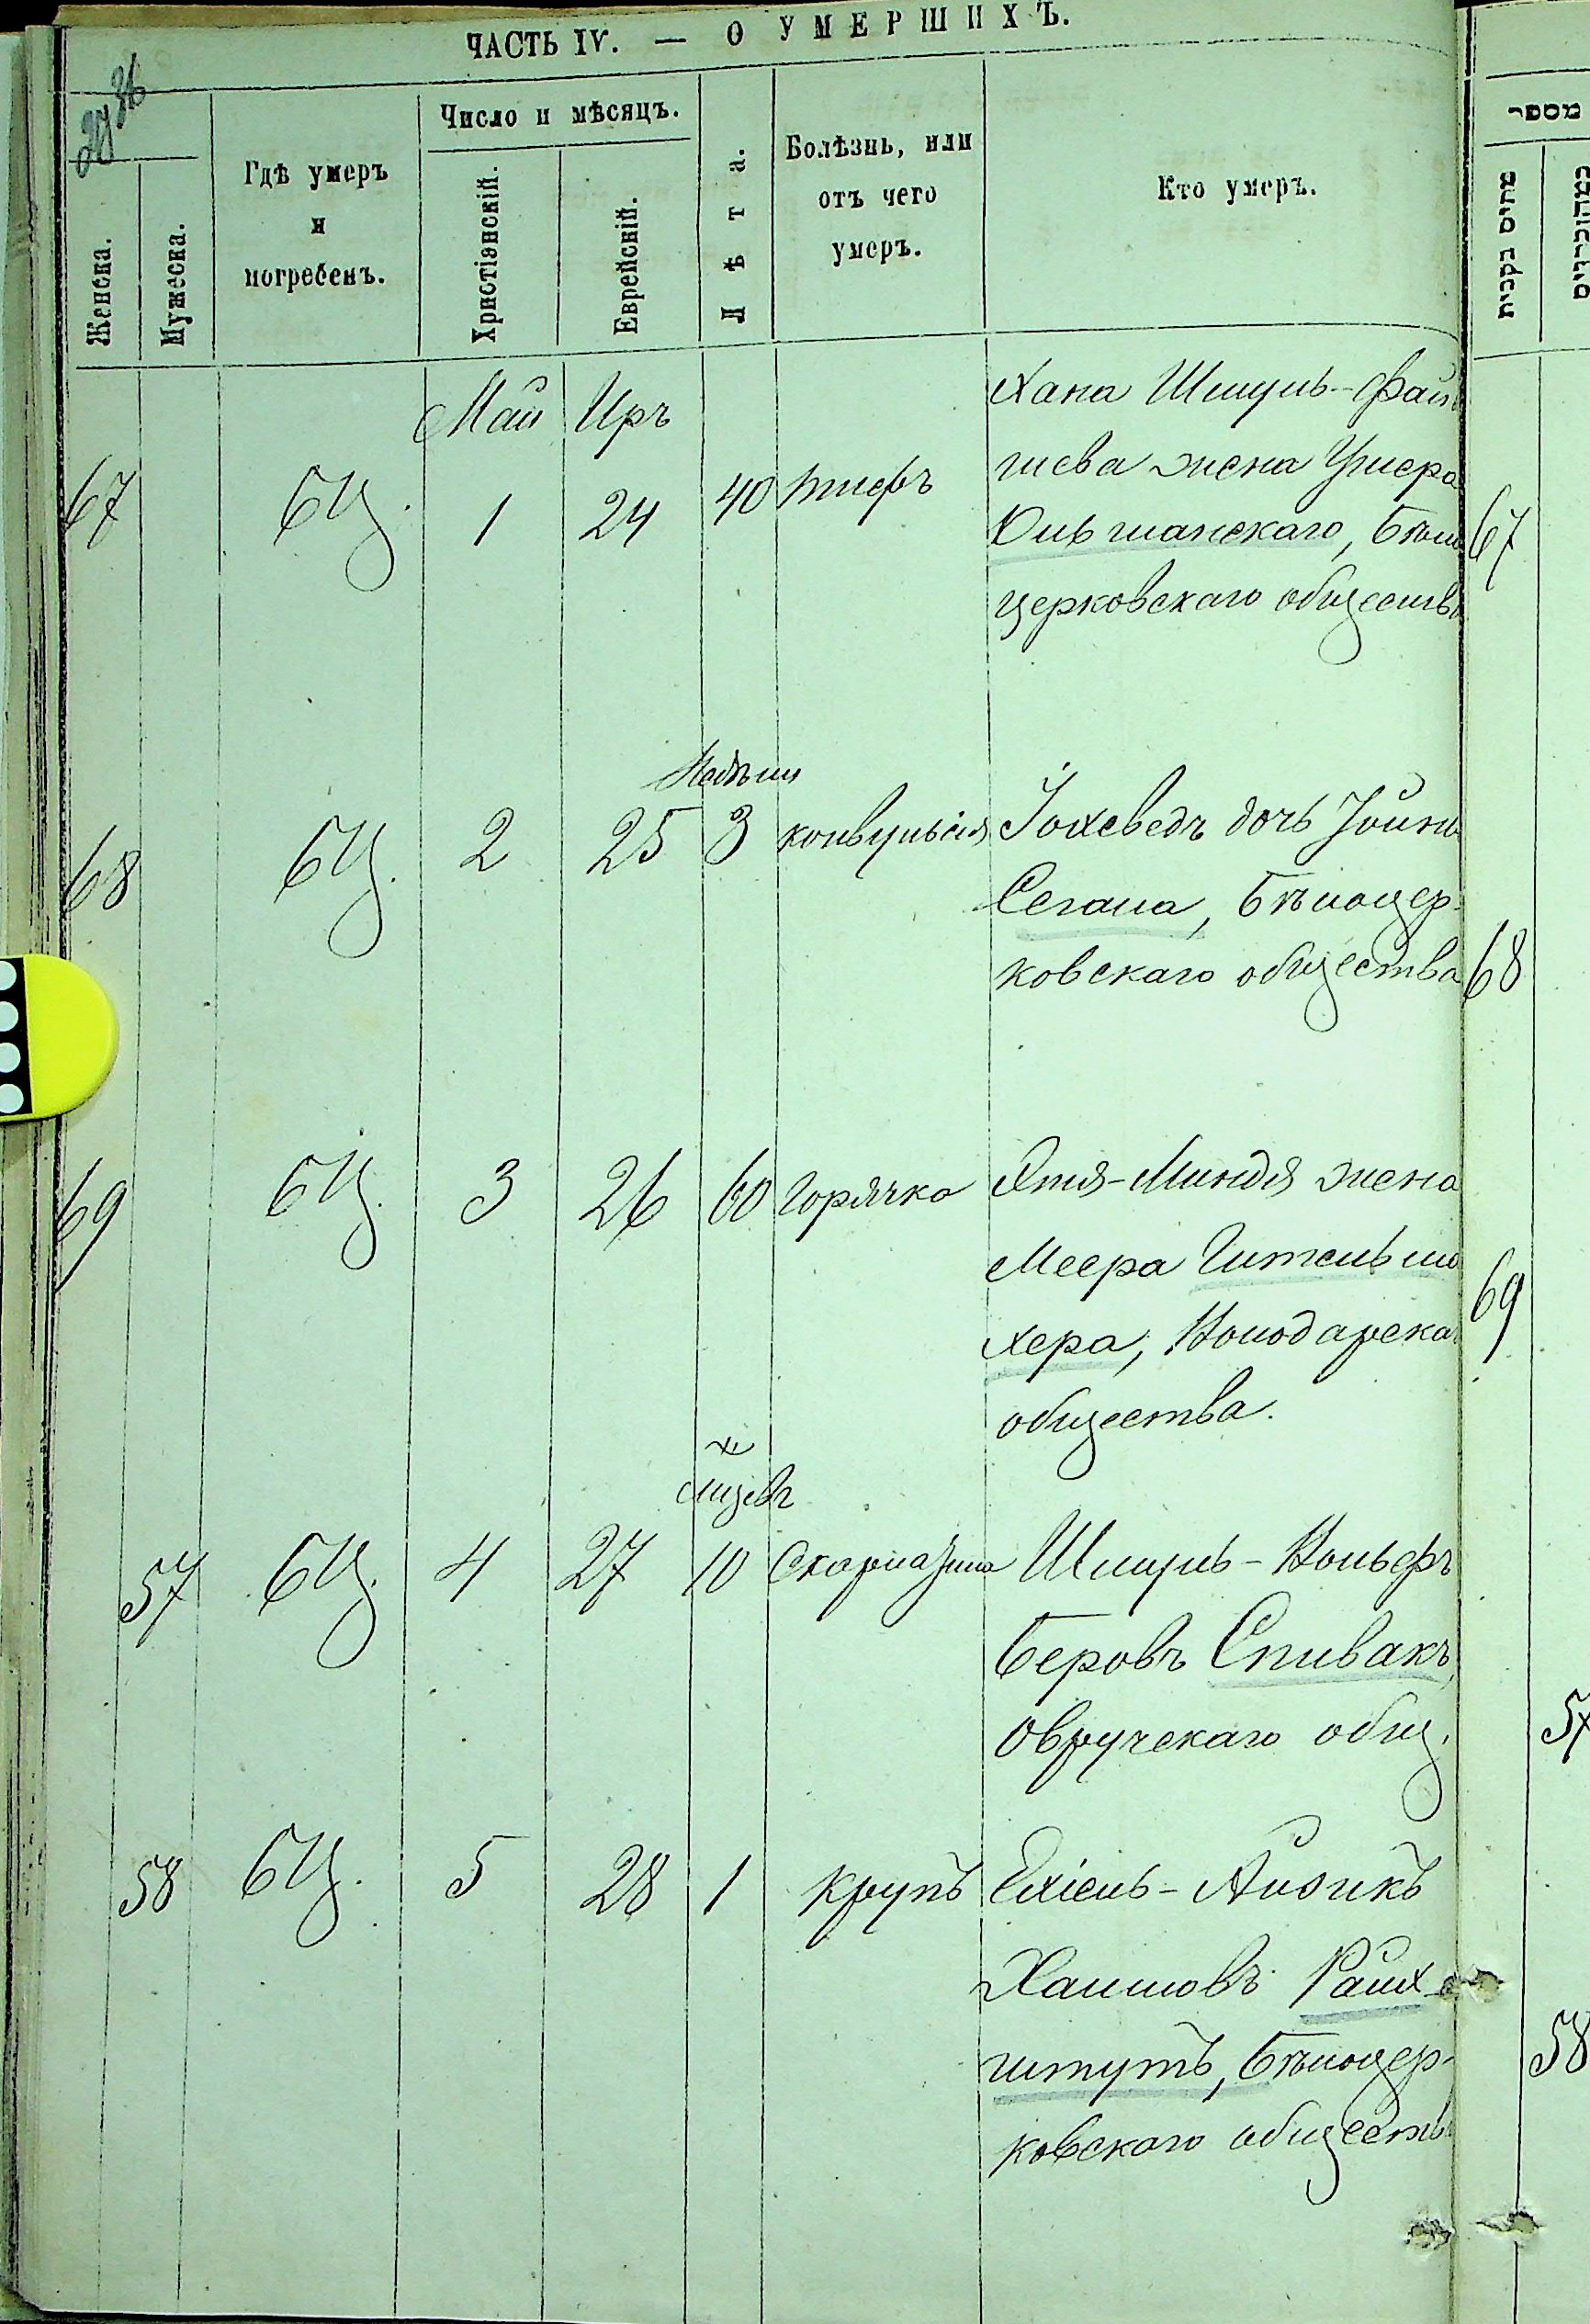 ЧАСТЬ IV. — О УМЕРШИХЪ.
36
Женска.
Мужеска.
Гдѣ умеръ
и
погребенъ.
Число и мѣсяцъ.
Христіанскій.
Еврейскій.
Лѣта.
Болѣзнь, или
отъ чего
умеръ.
Кто умеръ.
מספר
Май Иръ
67 БЦ. 1 24 40 тифъ
Хана Шмуль-Фай
жена Умера
Ольшанскаго, Бѣло
церковскаго общества
67
Недѣли
68 БЦ. 2 25 3 конвульсія Іохеведъ дочь Іойны
Сегала, Бѣлоцер-
ковскаго общества
68
69 БЦ. 3 26 60 горячка Этя-Миндя жена
Меера Гительма
хера, Володарска
общества.
69
мцевъ
57 БЦ. 4 27 10 Скарлатина Шмуль-Вольфъ
Беровъ Спивакъ,
Овручскаго общ.
57
58 БЦ. 5 28 1 крупъ Ехіель-Айзикъ
Хаимовъ Райх-
штутъ, Бѣлоцер-
ковскаго обществ
58